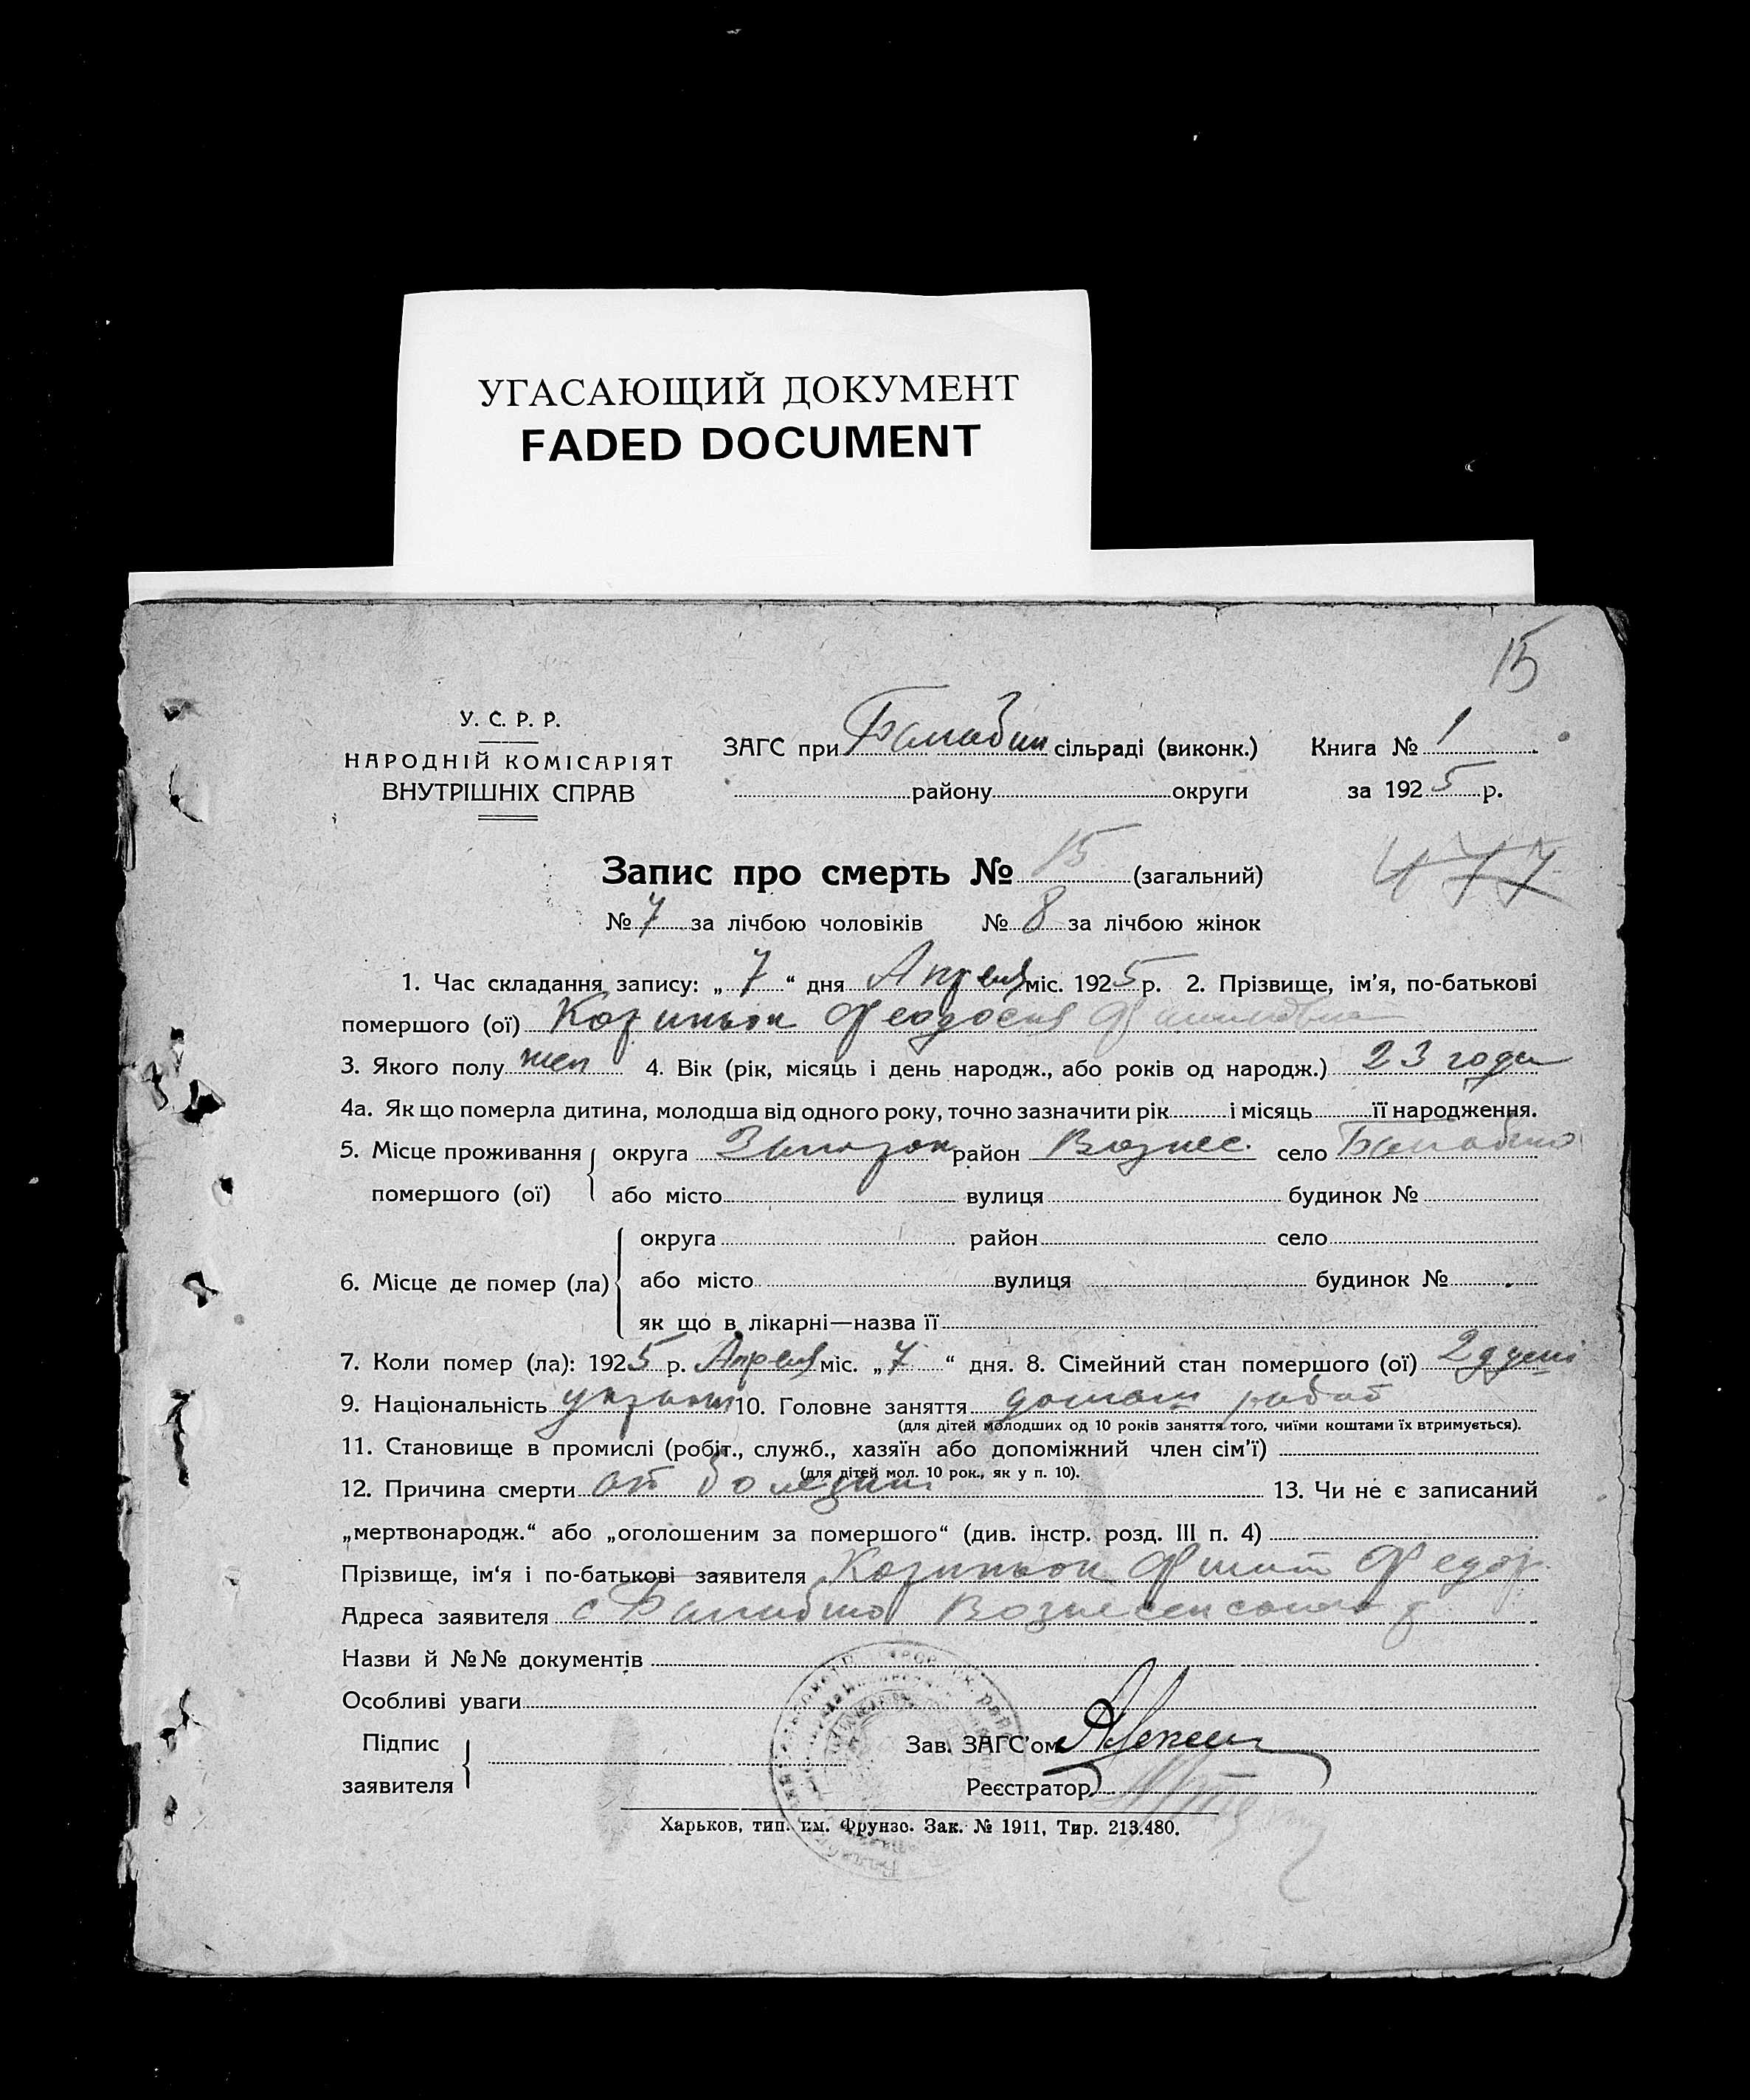 УГАСАЮЩИЙ ДОКУМЕНТ
FADED DOCUMENT
15
У. С. Р. Р.
НАРОДНІЙ КОМІСАРІЯТ
ВНУТРІШНІХ СПРАВ
ЗАГС при сільраді (виконк.) Книга № 1
району округи за 1925 р.
Запис про смерть № 15 (загальний)
477
№ 7 за лічбою чоловіків № 8 за лічбою жінок
1. Час складання запису: „ 7 “ дня Апреля міс. 1925 р. 2. Прізвище, ім'я, по-батькові
помершого (ої) Феодосия
3. Якого полу жен 4. Вік (рік, місяць і день народж., або років од народж.) 23 года
4а. Як що померла дитина, молодша від одного року, точно зазначити рік і місяць її народження.
5. Місце проживання округа Запорож район Вознес. село
помершого (ої) або місто вулиця будинок №
округа район село
6. Місце де помер (ла) або місто вулиця будинок №
як що в лікарні—назва її
7. Коли помер (ла): 1925 р. Апреля міс. „ 7 “ дня. 8. Сімейний стан помершого (ої) 2 души
9. Національність 10. Головне заняття домаш работ
(для дітей молодших од 10 років заняття того, чиїми коштами їх втримується).
11. Становище в промислі (робіт., служб., хазяїн або допоміжний член сім'ї)
(для дітей мол. 10 рок., як у п. 10).
12. Причина смерти от болезни 13. Чи не є записаний
„мертвонародж.“ або „оголошеним за помершого“ (див. інстр. розд. III п. 4)
Прізвище, ім'я і по-батькові заявителя Федор
Адреса заявителя с
Назви й №№ документів
Особливі уваги
Підпис Зав. ЗАГС'ом
заявителя Реєстратор
Харьков, тип. им. Фрунзе. Зак. № 1911, Тир. 213.480.